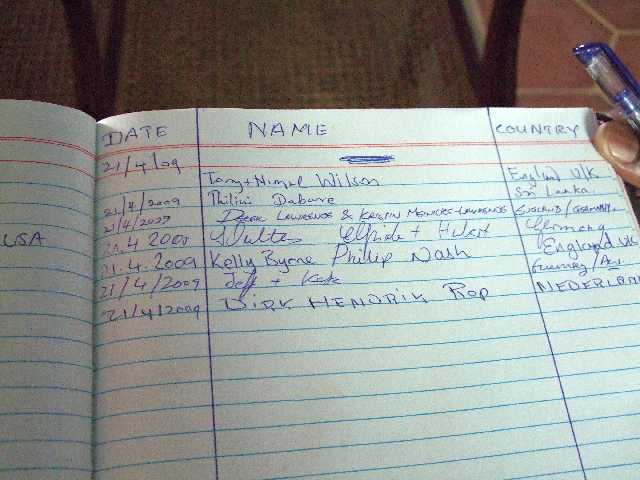 DATE NAME COUNTRY
21/4/09 Tony + Nimal Wilson England U/K
21/4/2009 Philini Dabare Sri Lanka.
21/4/2009 Derek Lawrence & Kerstin Lawrence England/Germany
21.4.2009 + Germany
21.4.2009 Kelly Byrne Phillip Nash England UK
21/4/2009 Jeff + Kate
21/4/2009 DIRK HENDRIK Rop NEDERLAND
USA